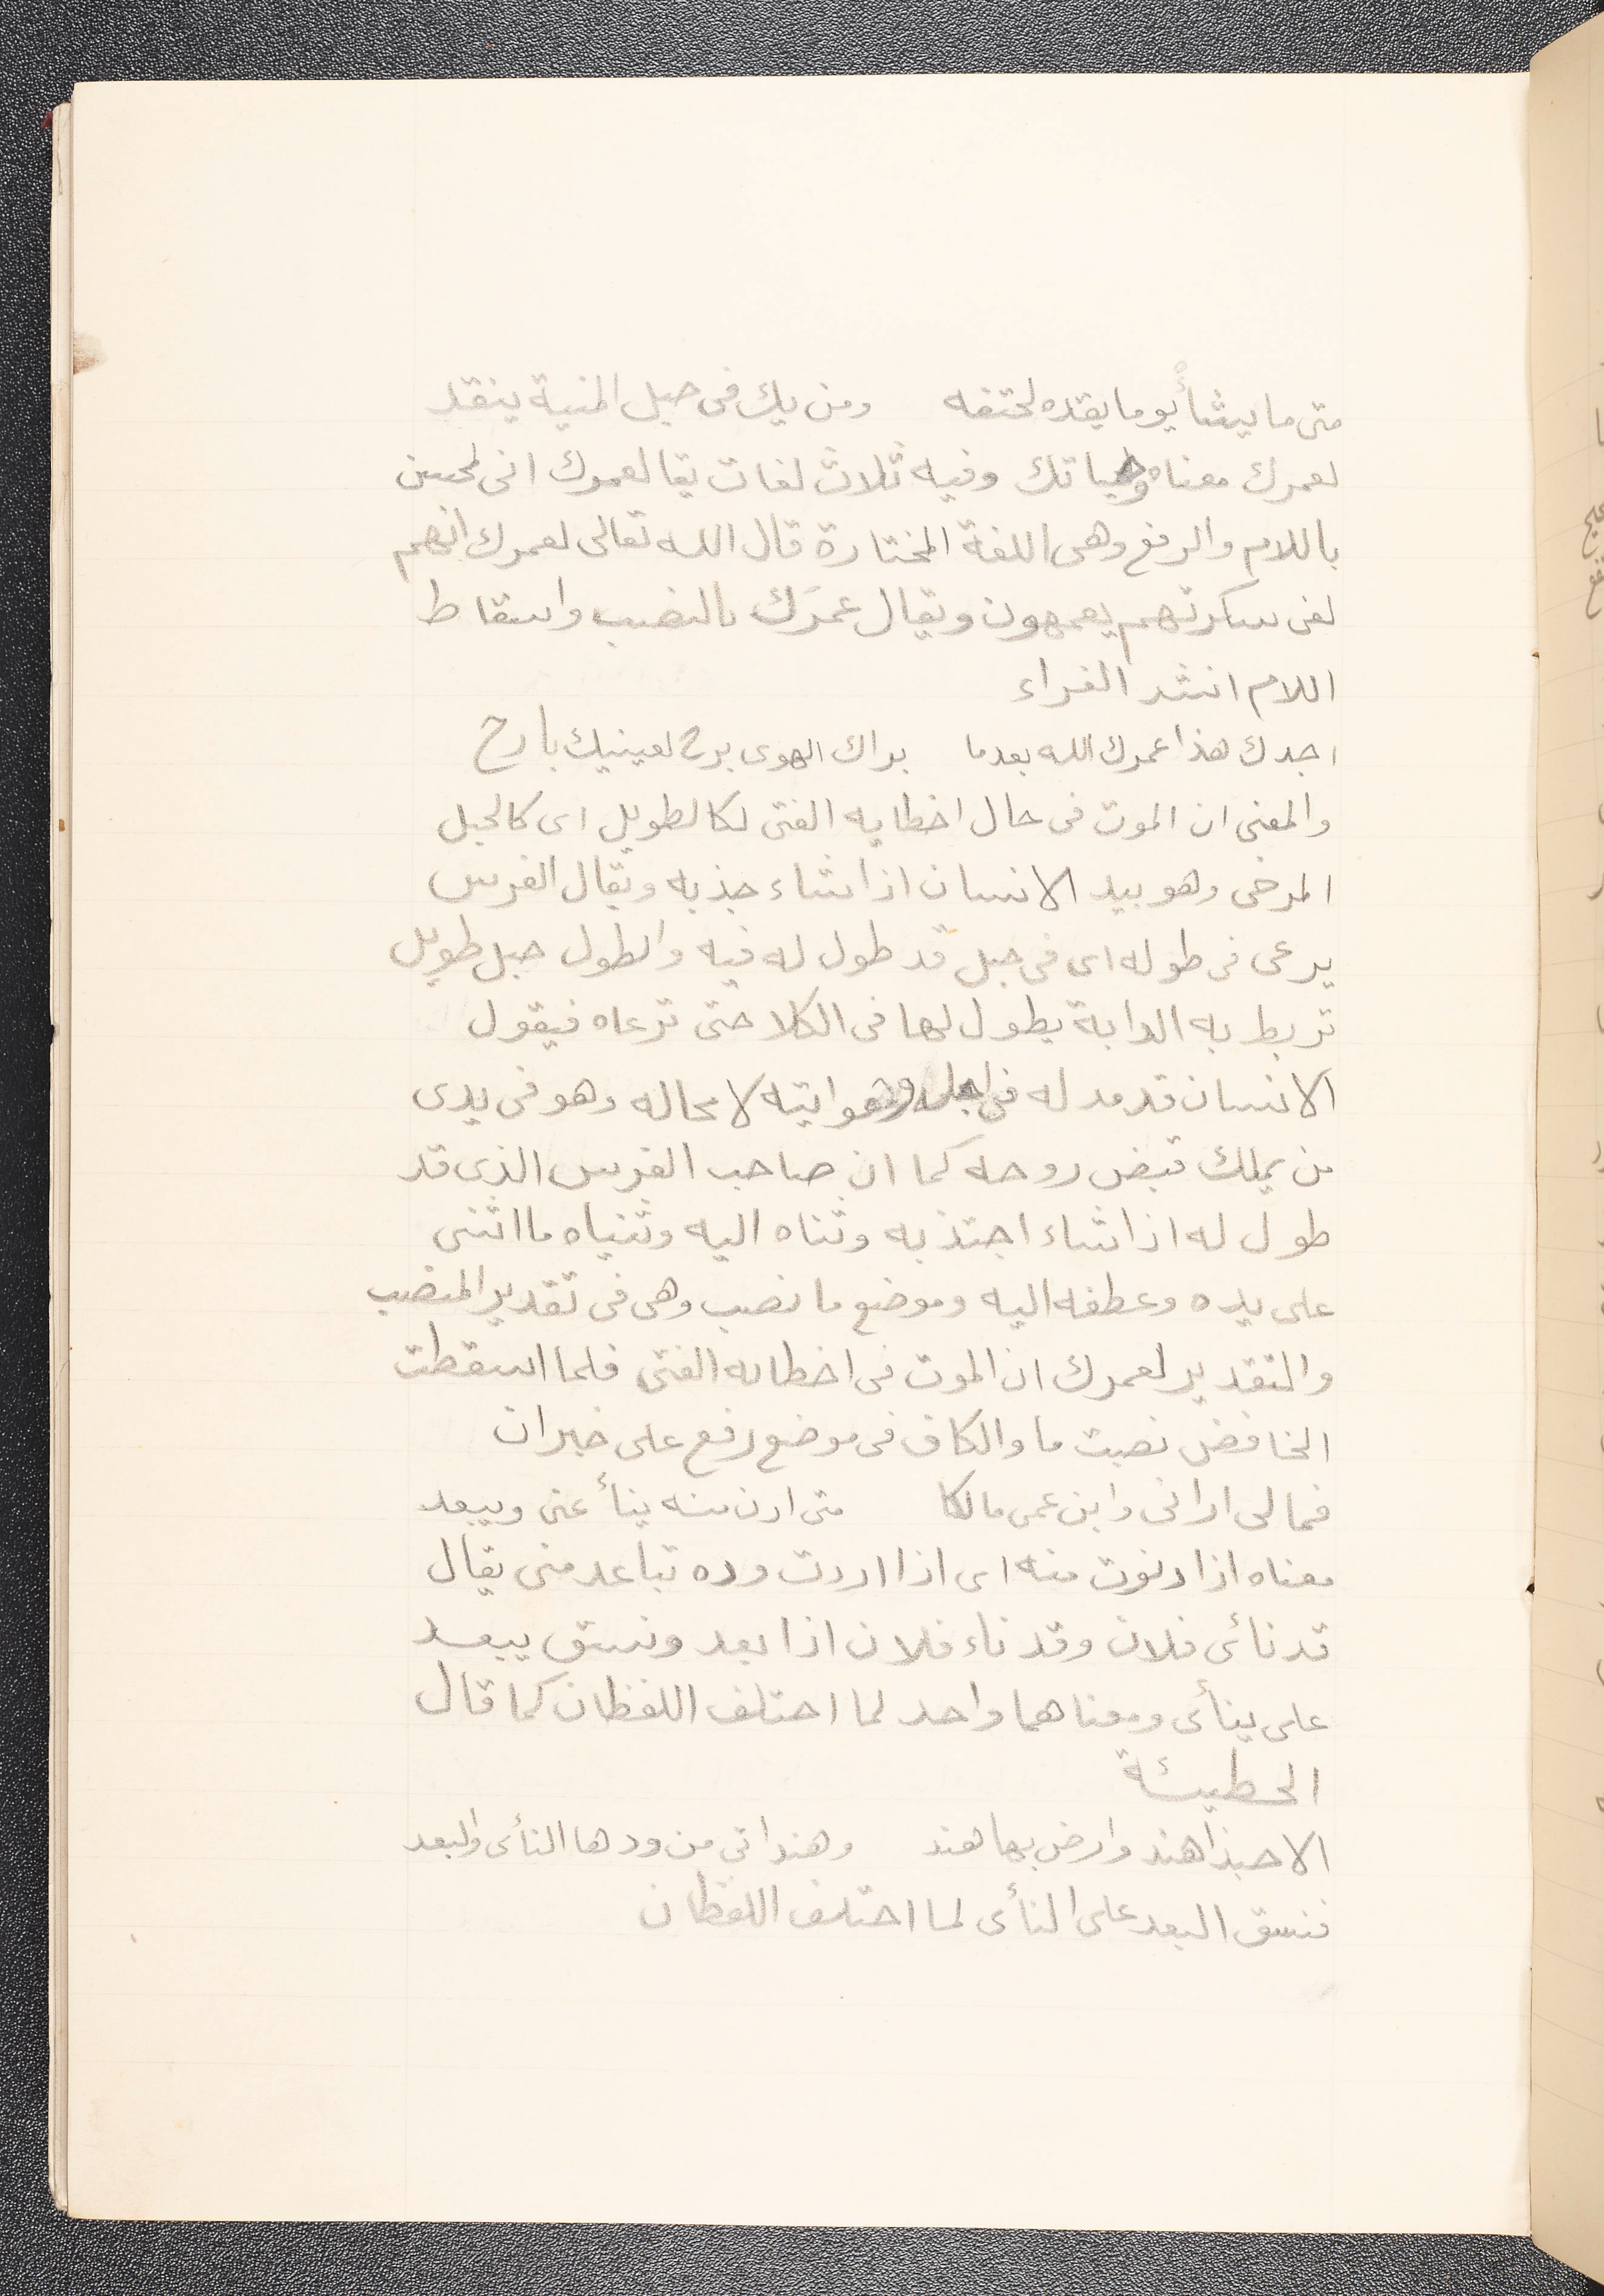 متى ما يشأ يوما يقده لحتفه ومن يك في حبل المنية ينقد
لعمرك معناه وحياتك وفيه ثلاث لغات يقا لعمرك انى لمحسن
باللام والرفع وهى اللغة المختارة قال الله تعالى لعمرك انهم
لفى سكرتهم يعمهون ويقال عمرَك بالنصب واسقاط
اللام انشد الفراء
اجدك هذا عمرك الله بعدما براك الهوى برح لعينيك بارح
والمعنى ان الموت فى حال اخطايه الفتى لكالطويل اى كالحبل
المرخى وهو بيد الانسان اذا شاء جذبه ويقال الفرس
يرعى فى طوله اى فى حبل قد طول له فيه والطول حبل طويل
تربط به الدابة يطول لها فى الكلا حتى ترعاه فيقول
الانسان قد مد له فى اجله وهو اتيه لا محاله وهو فى يدى
من يملك قبض روحه كما ان صاحب الفرس الذى قد
طول له اذا شاء اجتذبه وثناه اليه وثنياه ما اثنى
على يده وعطفه اليه وموضع ما نصب وهى فى تقدير المنصب
والتقدير لعمرك ان الموت فى اخطايه الفتى فلما اسقطت
الخافض نصبت ما والكاف فى موضع رفع على خبر ان
فمالى ارانى وابن عمى مالكا متى ادن منه ينأ عنى ويبعد
معناه اذا دنوت منه اى اذا اردت وده تباعد منى يقال
قد نائى فلان وقد ناء فلان اذا بعد ونسق يبعد
على ينأى ومعناهما واحد لما اختلف اللفظان كما قال
الحطيئة
الا حبذا هند وارض بها هند وهند اتى من ودها النأى والبعد
فنسق البعد على النأى لما اختلف اللفظان